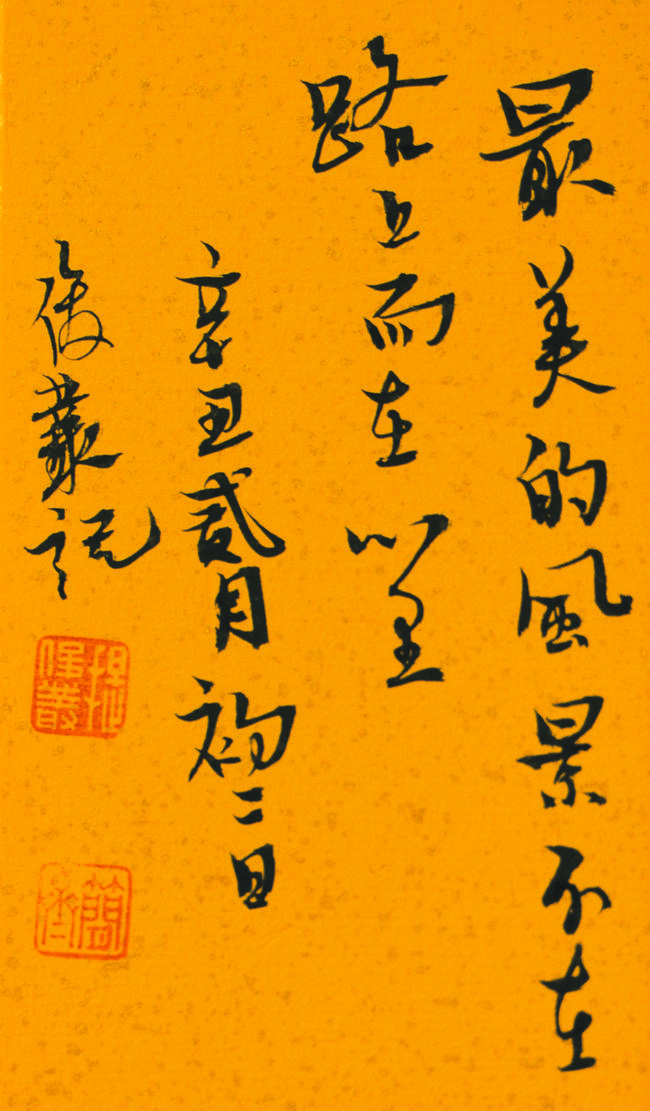 最美的風景不在
路上而在心里
辛丑貳月初二日
俊叢記